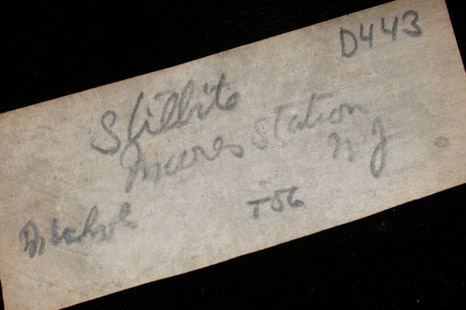 D443
Stilbite
Moores Station
N J
T56